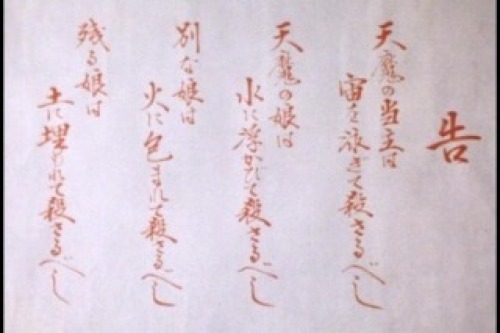 告
天魔の当主は
宙を泳ぎて殺さるべし
天魔の娘は
水に浮かびて殺さるべし
別な娘は
火に包まれて殺さるべし
残る娘は
土に埋もれて殺さるべし